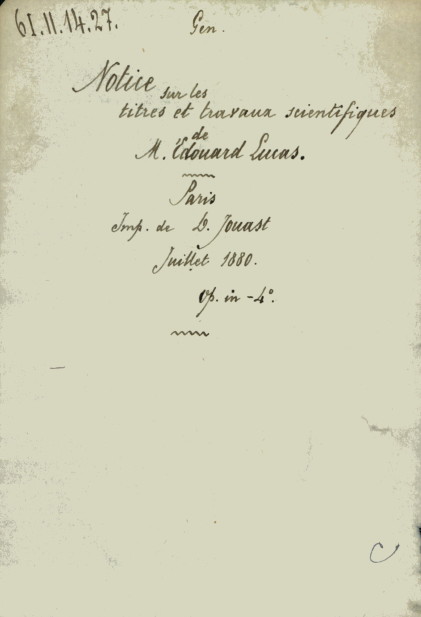 61.11.14.27.
Gen.
Notice
sur les
titres et travaux scientifiques
de
M. Edouard Lucas.
Paris
Imp. de D. Jouast
Juillet 1880.
op. in-4°.
C